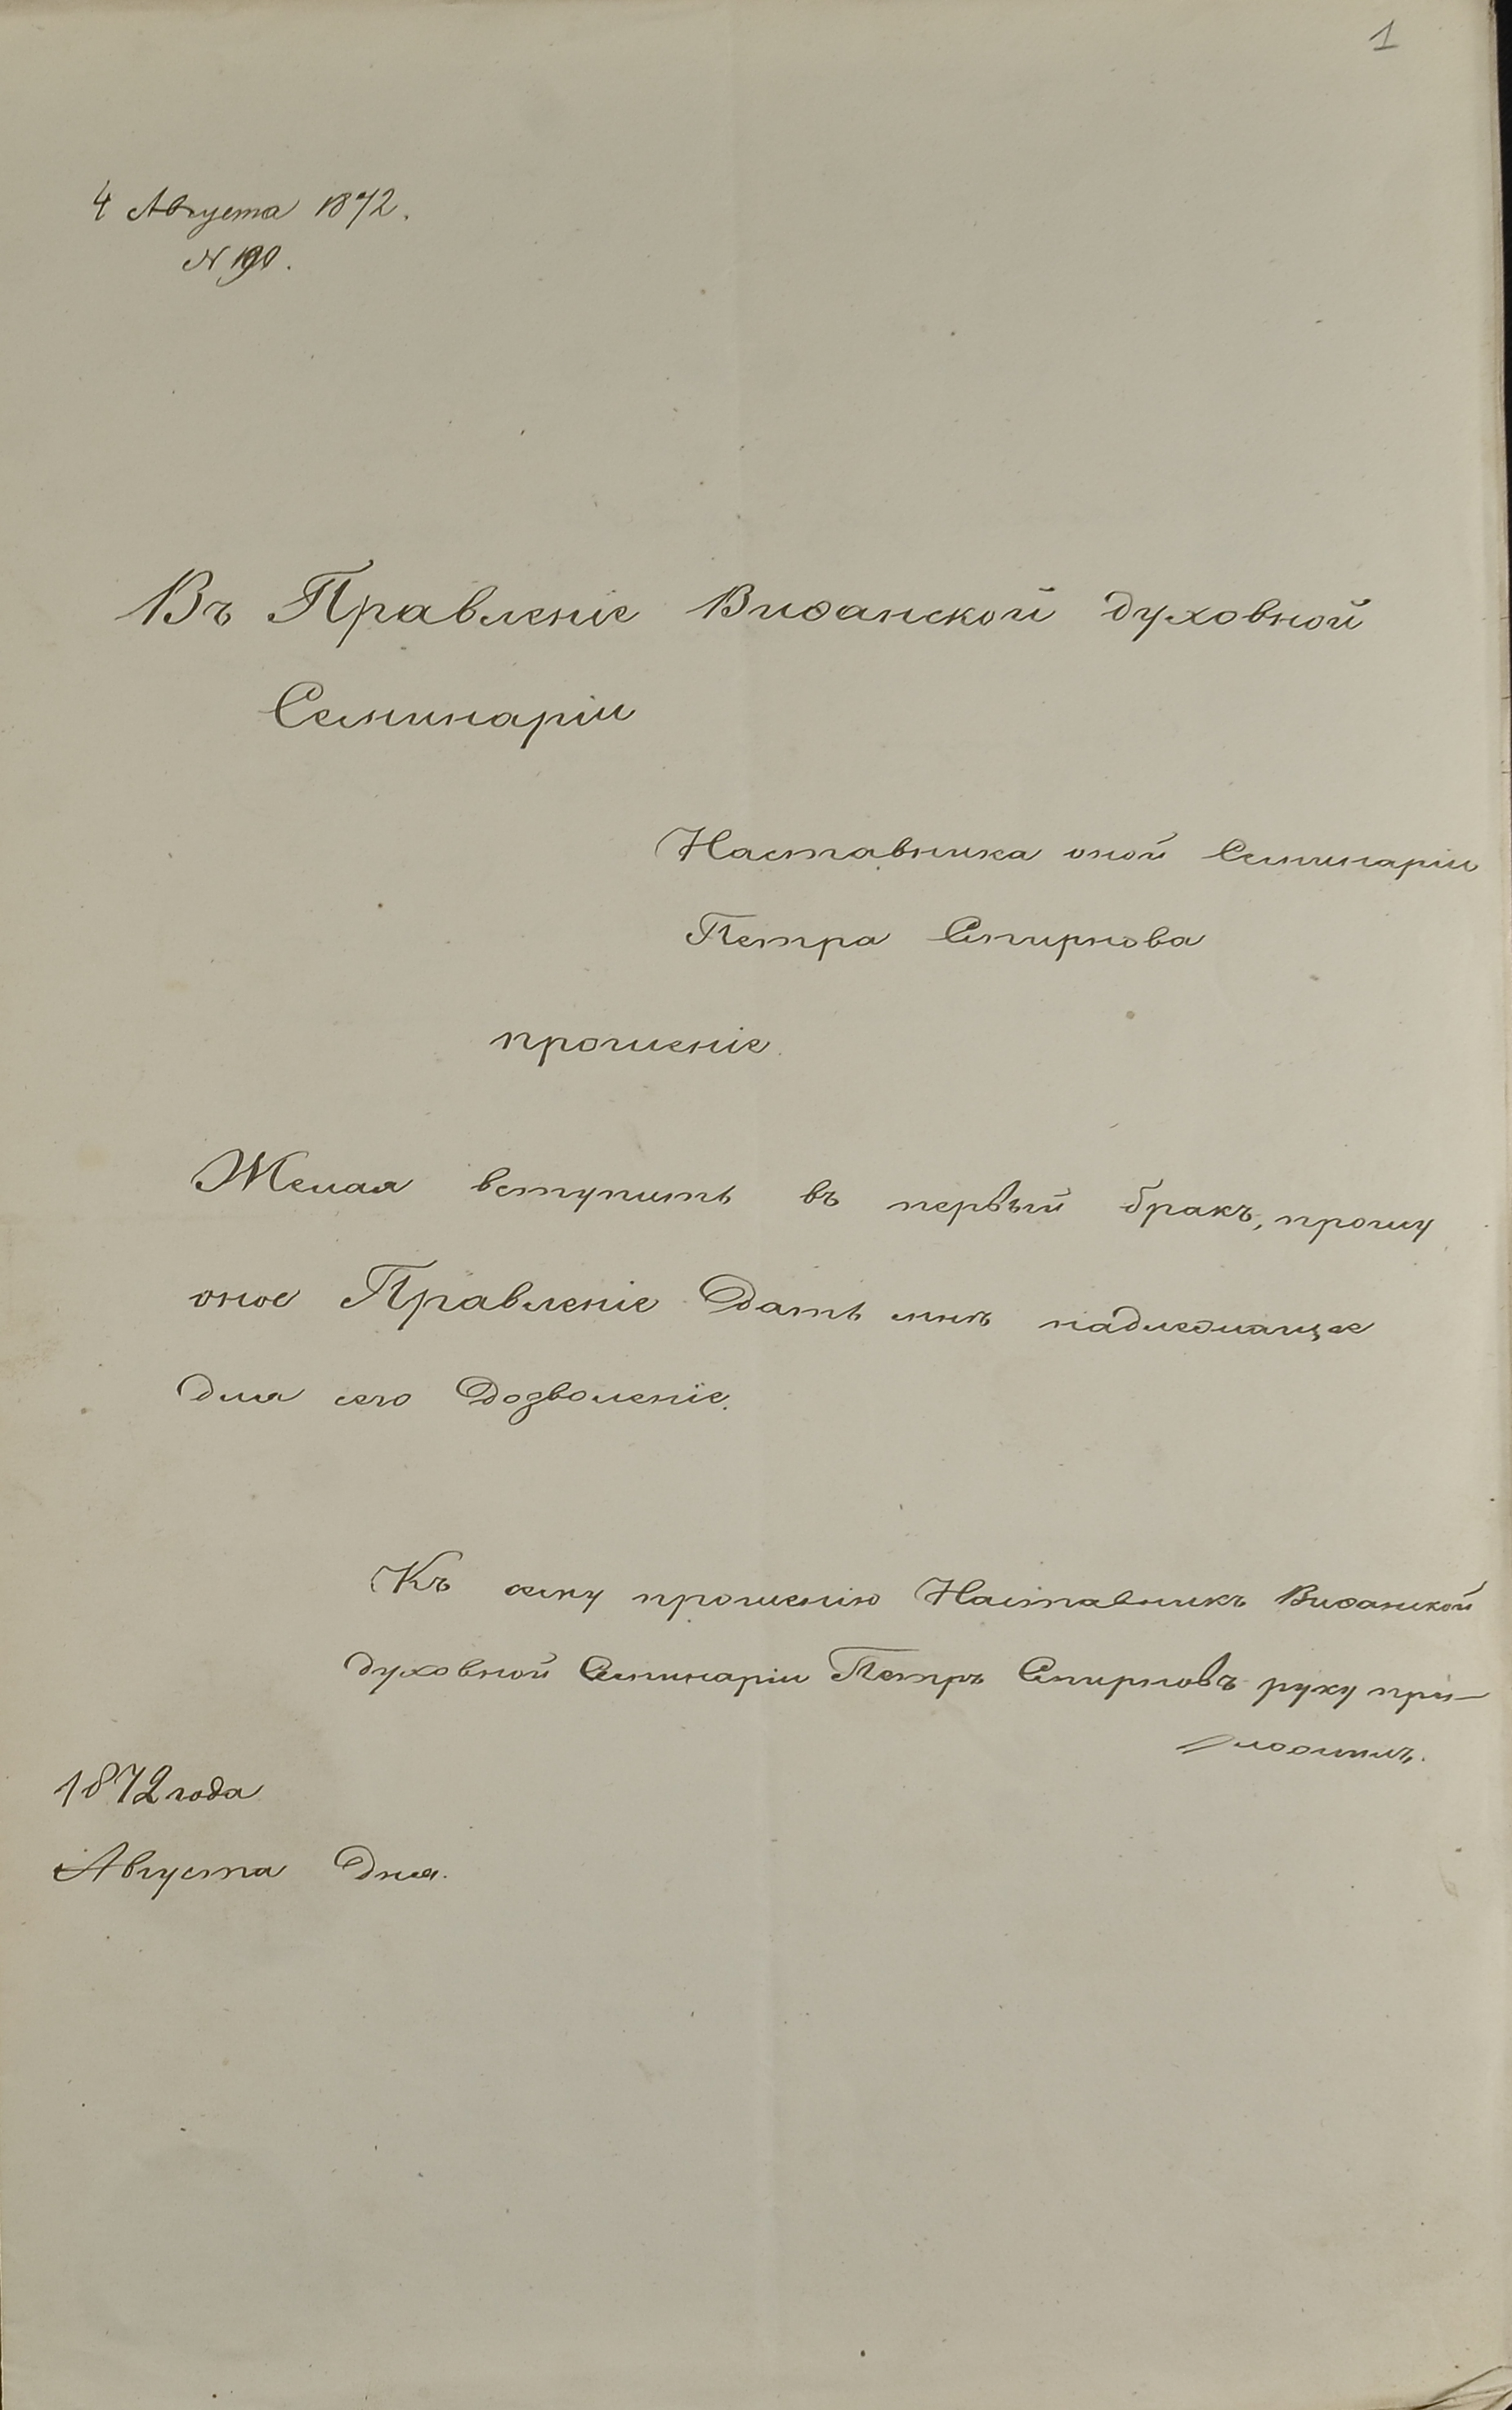 1
4 Августа 1872.
N 190.
Въ Правленіе Виѳанской духовной
Семинаріи
Наставника оной Семинаріи
Петра Смирнова
прошеніе.
Желая вступить въ первый бракъ, прошу
оное Правленіе дать мнѣ надлежащее
для сего дозволеніе.
Къ сему прошенію Наставникъ Виѳанской
духовной Семинаріи Петръ Смирновъ руку при-
ложилъ.
1872 года
Августа дня.